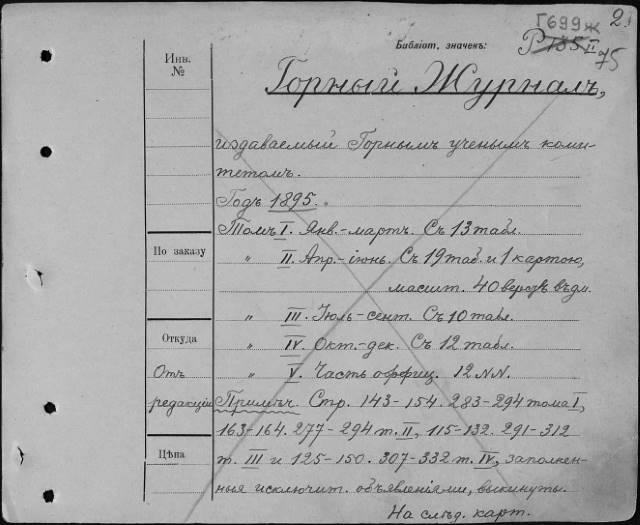 2.
Г699ж
Библіот. значекъ: Р 135 II
75
Инв.
№
Горный Журналъ,
издаваемый Горнымъ ученымъ коми-
тетомъ.
Годъ 1895.
Томъ I. Янв.-мартъ. Съ 13 табл.
По заказу
" II. Апр.-іюнь. Съ 19 таб. и 1 картою,
масшт. 40 верстъ въ дм.
" III. Іюль-сент. Съ 10 табл.
Откуда
" IV. Окт.-дек. Съ 12 табл.
Отъ
" V. Часть оффиц. 12 NN.
редакціи
Примѣч. Стр. 143-154. 283-294 тома I,
163-164. 277-294 т. II, 115-132. 291-312
Цѣна
т. III и 125-150. 307-332 т. IV, заполнен-
ныя исключит. объявленіями, выкинуты.
На слѣд. карт.